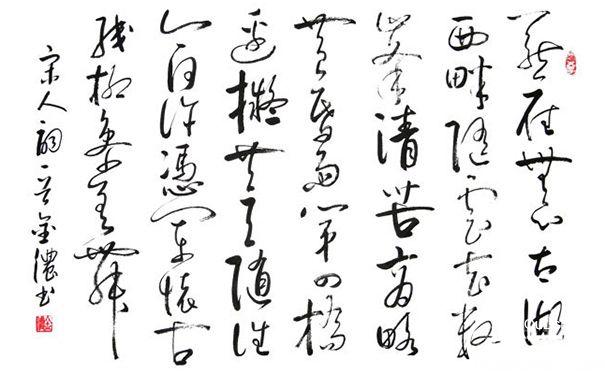 燕雁無心太湖
西畔隨雲去數
峰清苦商略
黃昏雨第四橋
邊擬共天隨住
今何許憑闌懷古
殘柳參差舞
宋人詞一首金濃書